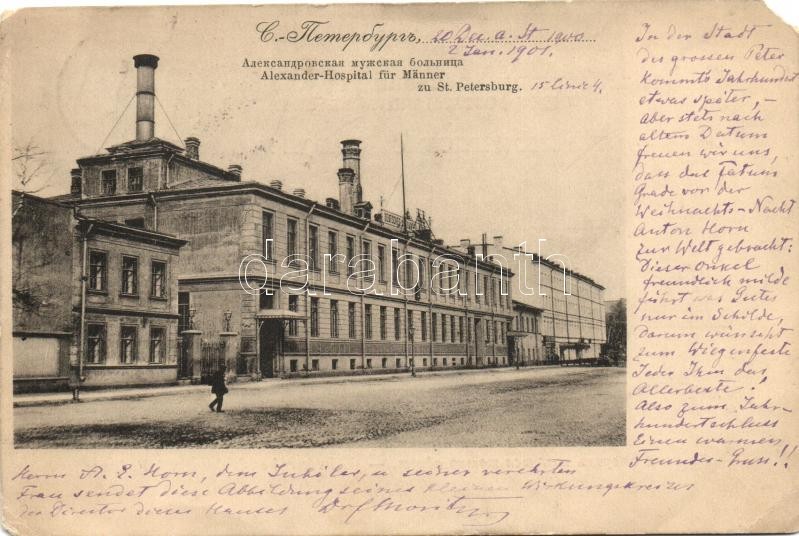 С.-Петербургъ, 20 Dec. a. St. 1900
2 Jan. 1901.
Александровская мужская больница
Alexander-Hospital für Männer
zu St. Petersburg. 15 Linie 4.
In der Stadt
des grossen Peter
kommt's Jahrhundert
etwas später, -
Aber stets nach
altem Datum
freuen wir uns,
dass das Fatum
Grade vor der
Weihnachts-Nacht
Anton Horn
zur Welt gebracht:
Dieser Onkel
freundlich milde
führt was Gutes
nur im Schilde,
Darum wünscht
zum Wiegenfeste
Jeder Ihm das
Allerbeste!
Also zum Jahr-
hundertschluss
Einen warmen
Freundes-Gruss!!
darabanth
Herrn A. L. Horn, dem Jubilar, u seiner verehrten
Frau sendet diese Abbildung seines kleinen Wirkungskreises
der Director dieses Hauses Dr E Moritz